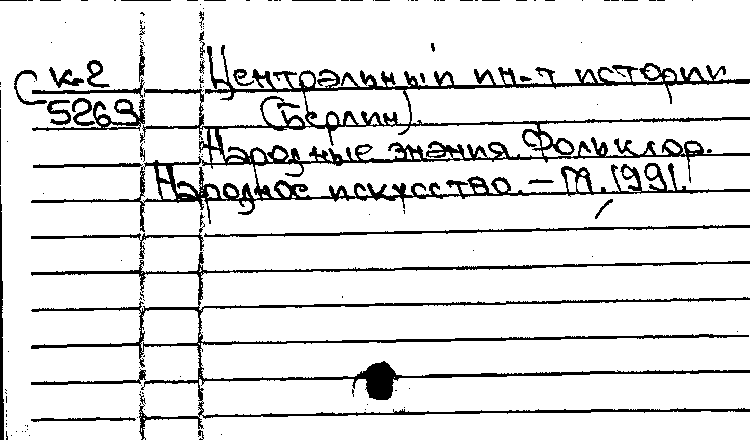 С к-2
5269
Центральный ин-т истории
(Берлин).
Народные знания. Фольклор.
Народное искусство. – М. 1991.